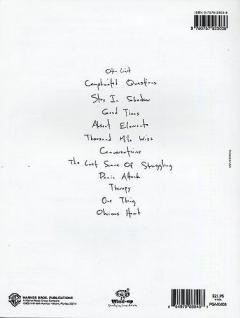 ISBN 0-7579-2303-8
Complicated Questions
Stay In Shadow
Good Times
Absent Elements
Thousand Mile Wish
Conversations
The Last Sense Of Struggling
Panic Attack
Therapy
One Thing
Obvious Heart
WARNER BROS. PUBLICATIONS
Wind-up
$21.95